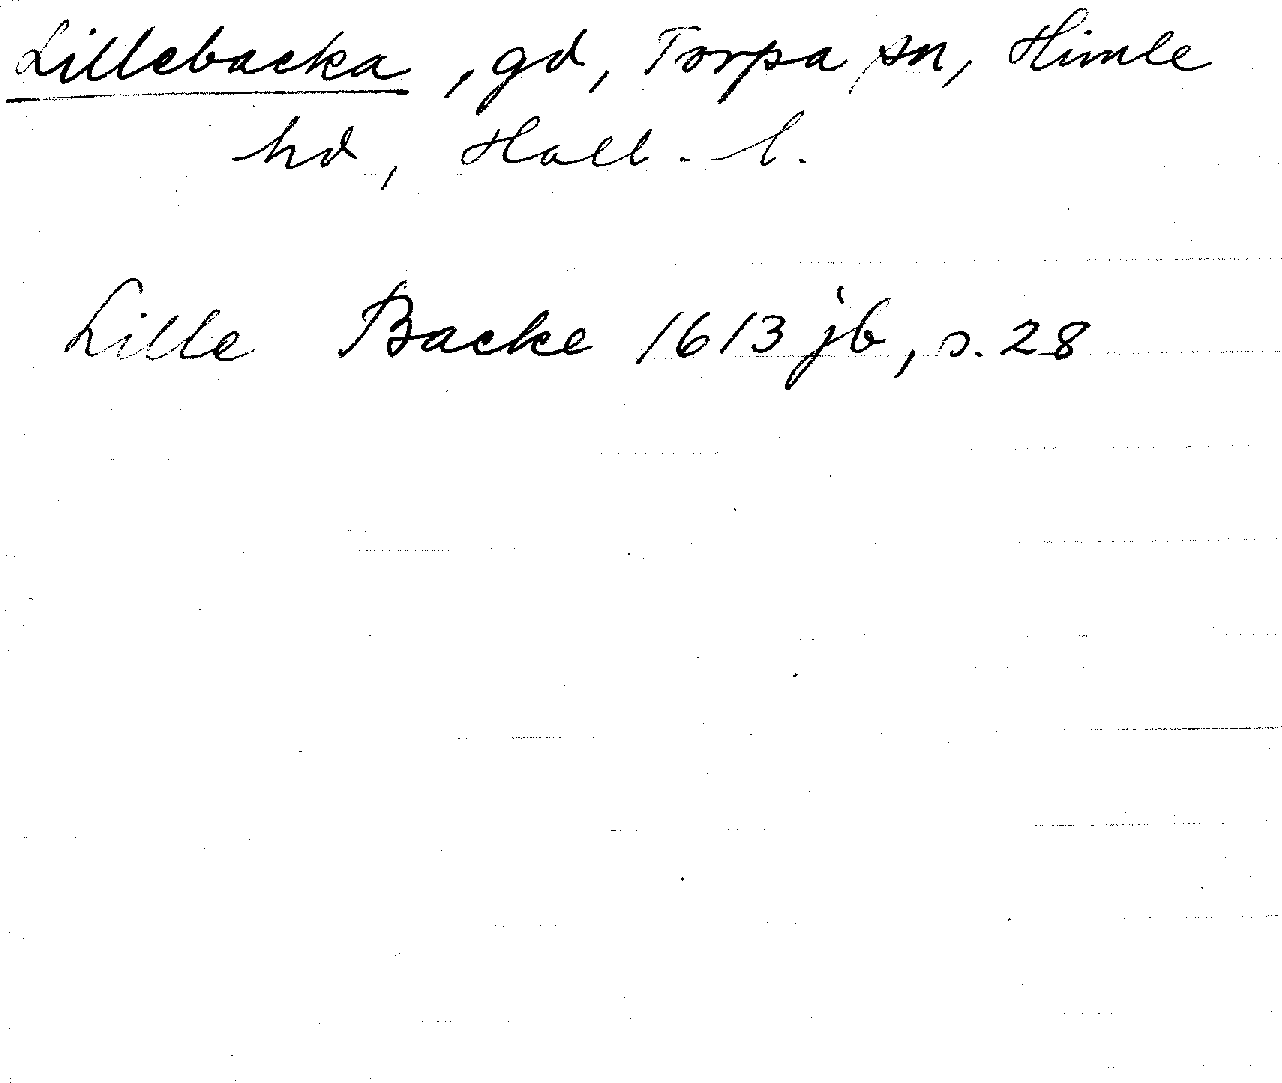 Lillebacka, gd, Torpa sn, Himle
hd, Hall. l.
Lille Backe 1613 jb, s. 28